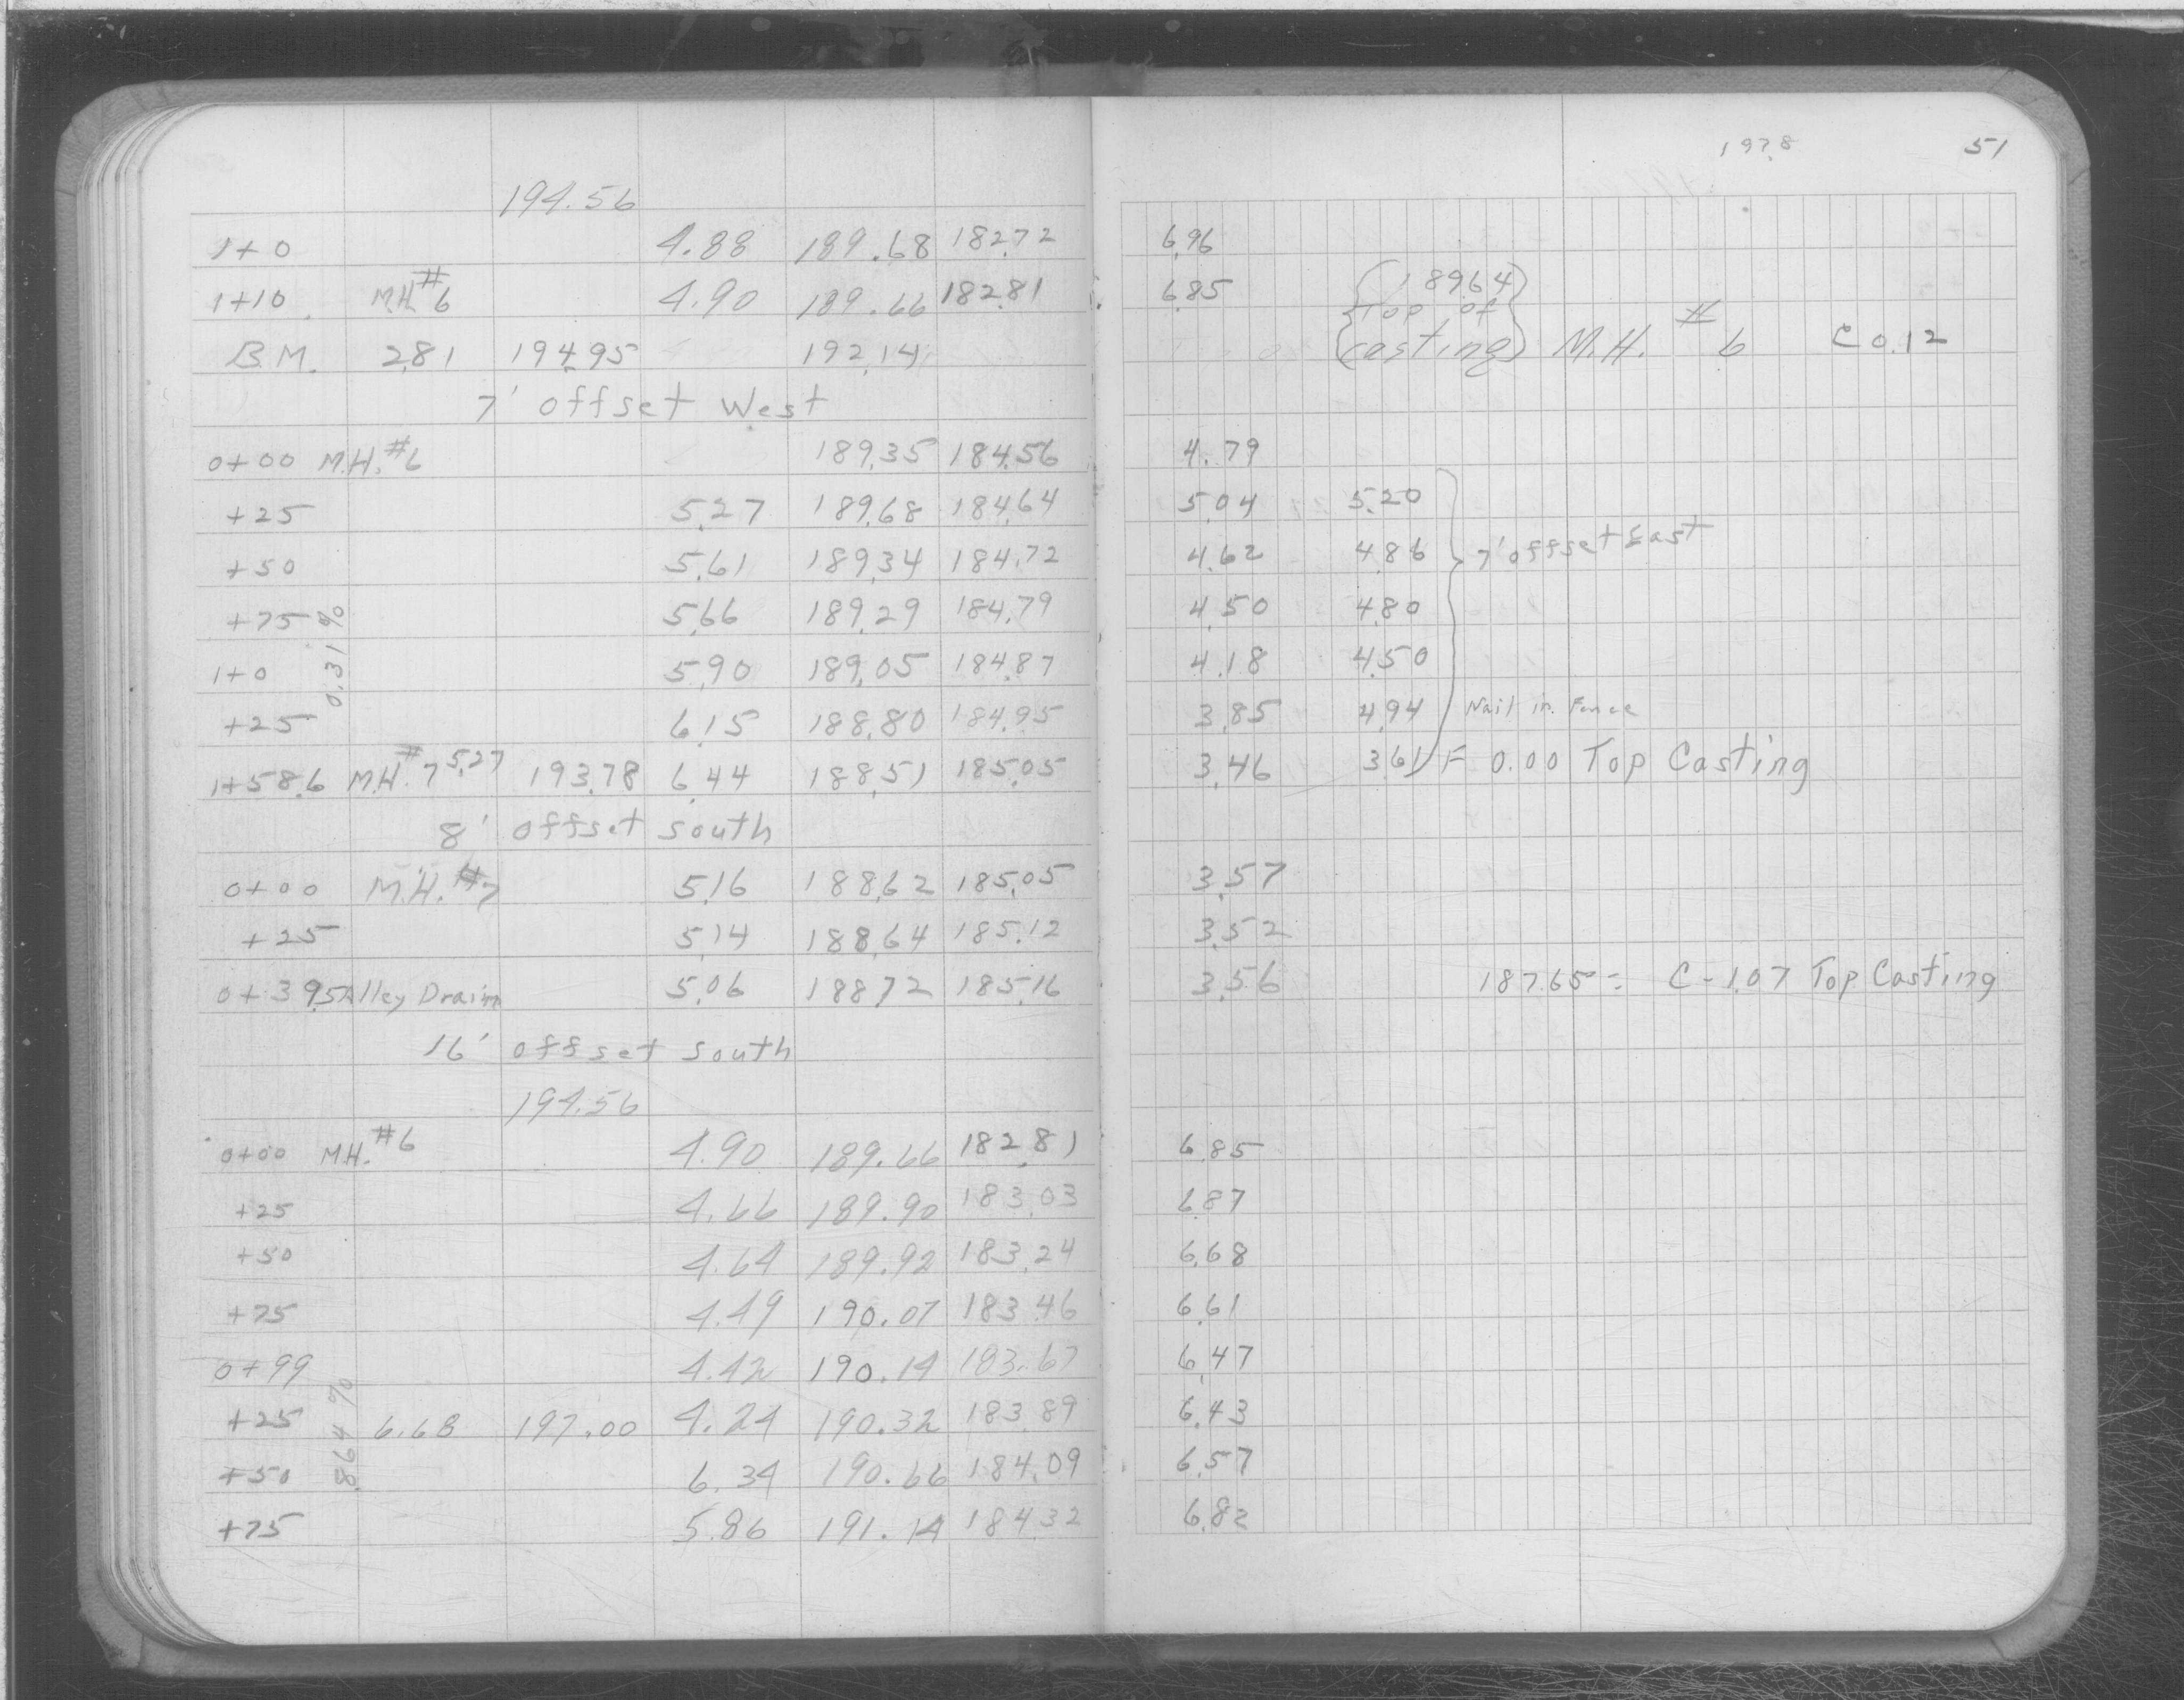 197.8 51
194.56
1+0 4.88 189.68 182.72 6.96
1+10 M.H.#6 4.90 189.66 182.81 6.85 (189.64)
B.M. 2.81 194.95 192.14 {Top of casting} M.H. #6 C 0.12
7' offset West
0+00 M.H.#6 189.35 184.56 4.79
+25 5.27 189.68 184.64 5.04 5.20
+50 5.61 189.34 184.72 4.62 4.86 7' offset East
+75 5.66 189.29 184.79 4.50 4.80
0.31%
1+0 5.90 189.05 184.87 4.18 4.50
+25 6.15 188.80 184.95 3.85 4.94 Nail in Fence
1+58.6 M.H.#7 5.27 193.78 6.44 188.51 185.05 3.46 3.61 F 0.00 Top Casting
8' offset south
0+00 M.H.#7 5.16 188.62 185.05 3.57
+25 5.14 188.64 185.12 3.52
0+39.5 Alley Drain 5.06 188.72 185.16 3.56 187.65 = C-1.07 Top Casting
16' offset south
194.56
0+00 M.H.#6 4.90 189.66 182.81 6.85
+25 4.66 189.90 183.03 6.87
+50 4.64 189.92 183.24 6.68
+75 4.49 190.07 183.46 6.61
0+99 4.42 190.14 183.67 6.47
+25 6.68 197.00 4.24 190.32 183.89 6.43
.864%
+50 6.34 190.66 184.09 6.57
+75 5.86 191.14 184.32 6.82